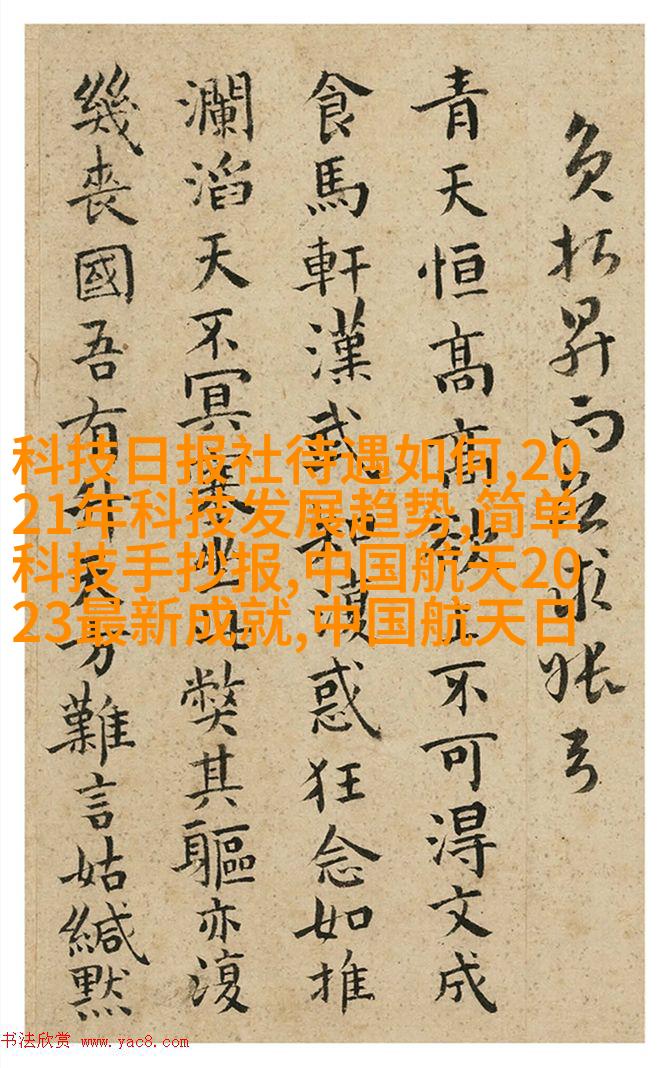 而求
青天恒高高不可得文成
食馬軒漢武惑狂念如推
瀾滔天不冥坐弊其軀亦復
幾喪國吾有方難言姑緘默
科技日报社待遇如何,20
21年科技发展趋势 简单
科技手抄报,中国航天20
23最新成就,中国航天日
书法欣赏 www.yac8.com